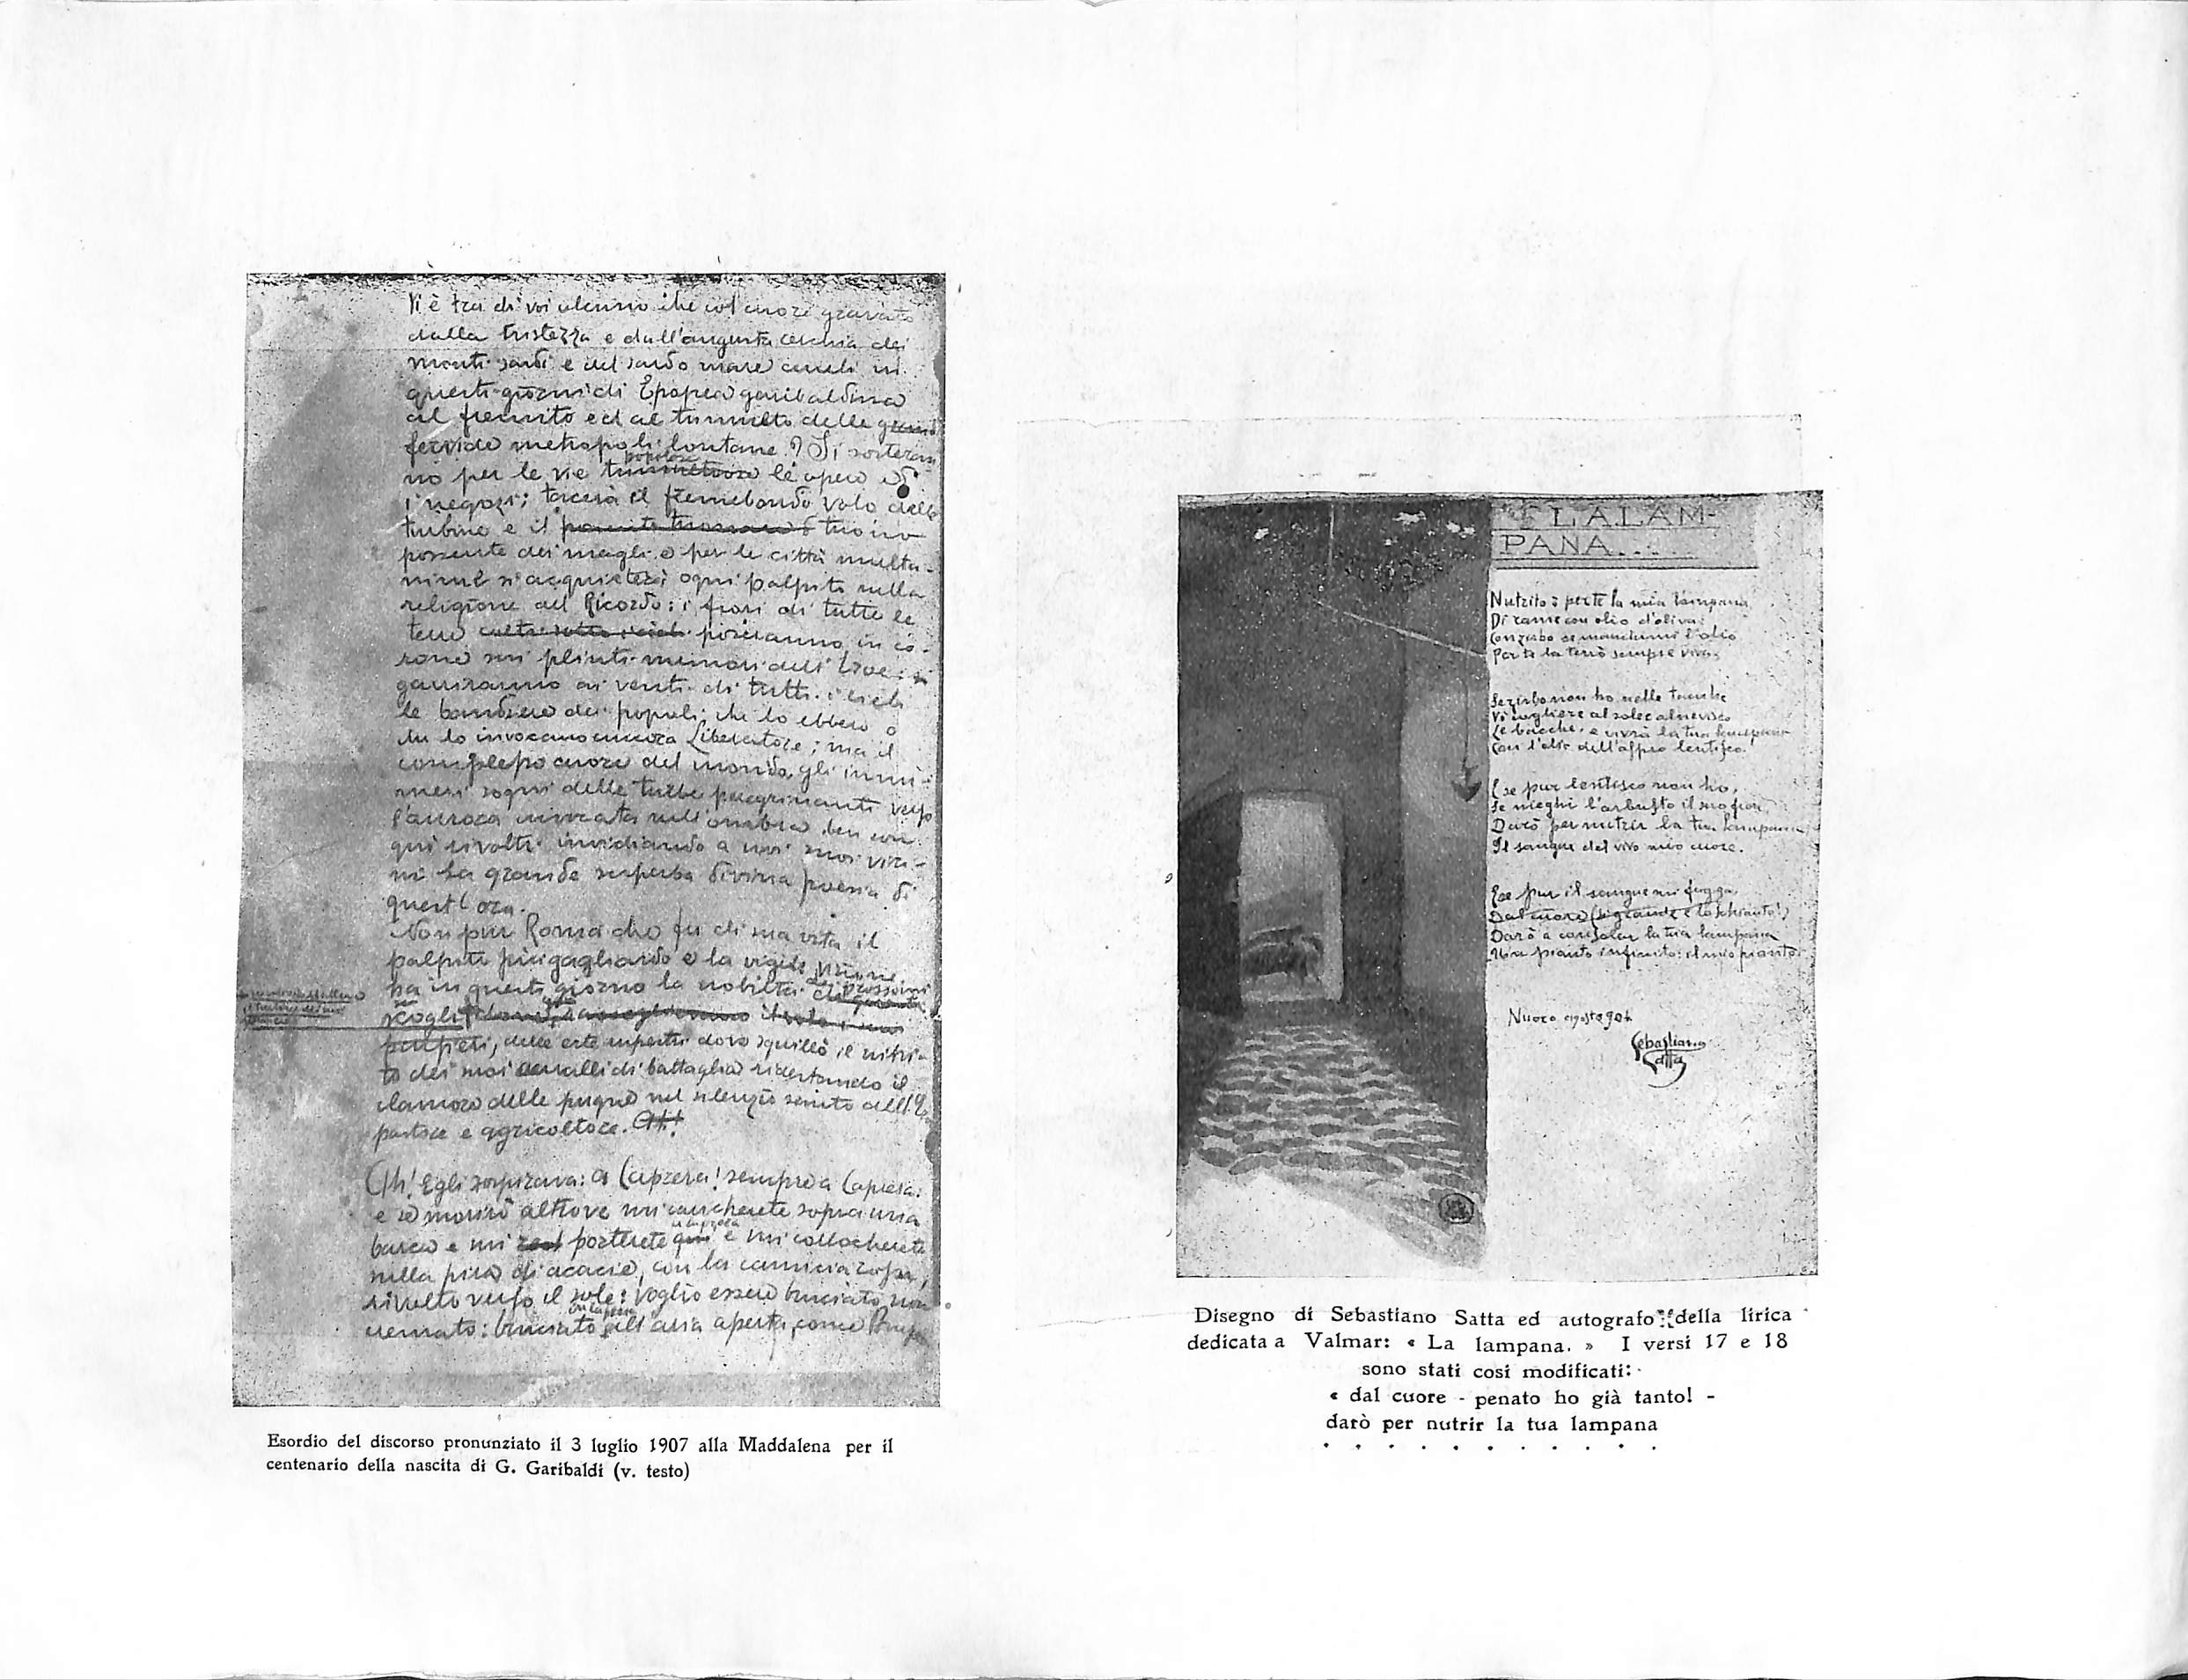 Vi è tra di voi alcuno che col cuore gravato
dalla tristezza e dall'angusta cerchia dei
monti sardi e del sardo mare aneli in
questi giorni di Epopea garibaldina
al fremito ed al tumulto delle
fervide metropoli lontane? Si sosteran
no per le vie popolose tumultuose le opere ed
i negozi; tacerà il fremebondo volo delle
turbine e il tuono
possente dei magli e per le città multa-
nimi s'acquieterà ogni palpito nella
religione del Ricordo: i fiori di tutte le
terre poseranno in co-
rone sui plinti memori dell'Eroe:
garriranno ai venti di tutti i cieli
le bandiere dei popoli che lo ebbero o
che lo invocano ancora Liberatore; ma il
complesso cuore del mondo, gli immi-
nensi sogni delle turbe peregrinanti verso
l'aurora invocata nell'ombra, ben son
qui rivolti invidiando a noi suoi vici-
ni la grande superba divina poesia di
quest'ora.
Non pur Roma che fu di sua vita il
palpito più gagliardo e la vigile visione
ha in questo giorno la nobiltà
scogli
dell' erte rupestri dove squillò il nitri-
to dei suoi cavalli di battaglia ridestando il
clamore delle pugne nel silenzio sancito dell'E.
pastore e agricoltore. Ah!
Oh! Egli sospirava: a Caprera! sempre a Caprera:
e se morirò altrove mi caricherete sopra una
barca e mi porterete qui e mi collocherete
sulla pira di acacie, con la camicia rossa,
rivolto verso il sole: voglio essere bruciato non
cremato: bruciato all'aria aperta, come
Esordio del discorso pronunziato il 3 luglio 1907 alla Maddalena per il
centenario della nascita di G. Garibaldi (v. testo)
LA LAM-
PANA.....
Nutrito ò per te la mia lampana
Di rame con olio d'oliva:
Con serbo se manchimi l'olio
Per te la terrò sempre viva.
Se serbo non ho nelle tanche
Vò cogliere al sole e al nevisco
Le bacche, e vivrà la tua lampana
Con l'olio dell'aspro lentisco.
E se pur lentisco non ho,
Se nieghi l'arbusto il suo fiore,
Darò per nutrir la tua lampana
Il sangue del vivo mio cuore.
E se pur il sangue mi fugga
Dal cuore (sì grande è lo schianto!)
Darò a consolar la tua lampana
Un pianto infinito: il mio pianto.
Nuoro agosto 904
Sebastiano
Satta
Disegno di Sebastiano Satta ed autografo della lirica
dedicata a Valmar: « La lampana. » I versi 17 e 18
sono stati così modificati:
« dal cuore - penato ho già tanto! -
darò per nutrir la tua lampana
. . . . . . . . . . .